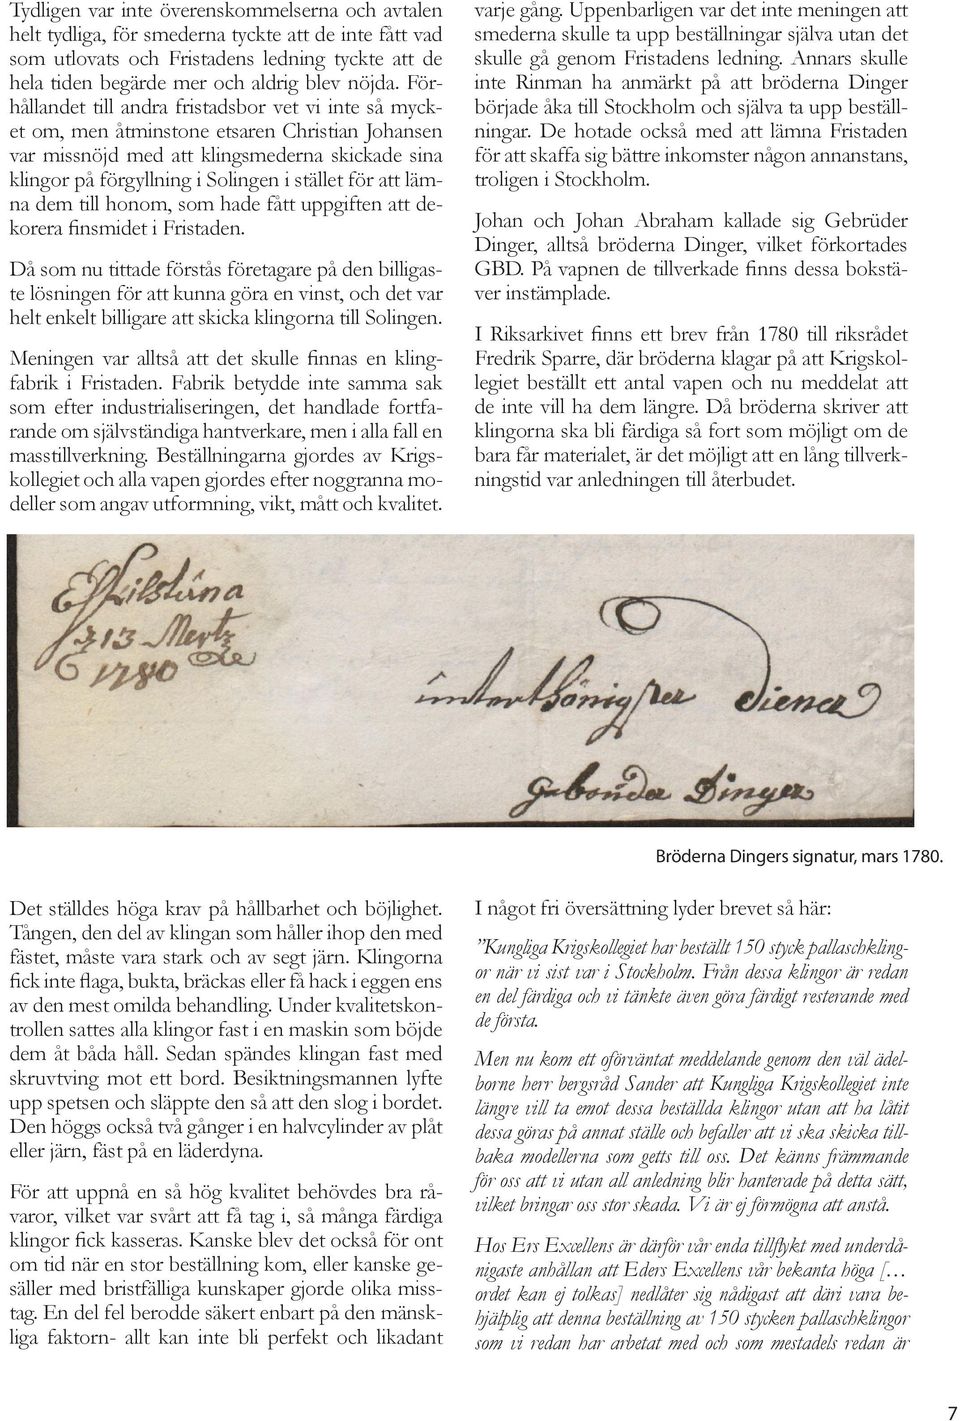 Tydligen var inte överenskommelserna och avtalen
helt tydliga, för smederna tyckte att de inte fått vad
som utlovats och Fristadens ledning tyckte att de
hela tiden begärde mer och aldrig blev nöjda. För-
hållandet till andra fristadsbor vet vi inte så myck-
et om, men åtminstone etsaren Christian Johansen
var missnöjd med att klingsmederna skickade sina
klingor på förgyllning i Solingen i stället för att läm-
na dem till honom, som hade fått uppgiften att de-
korera finsmidet i Fristaden.
Då som nu tittade förstås företagare på den billigas-
te lösningen för att kunna göra en vinst, och det var
helt enkelt billigare att skicka klingorna till Solingen.
Meningen var alltså att det skulle finnas en kling-
fabrik i Fristaden. Fabrik betydde inte samma sak
som efter industrialiseringen, det handlade fortfa-
rande om självständiga hantverkare, men i alla fall en
masstillverkning. Beställningarna gjordes av Krigs-
kollegiet och alla vapen gjordes efter noggranna mo-
deller som angav utformning, vikt, mått och kvalitet.
varje gång. Uppenbarligen var det inte meningen att
smederna skulle ta upp beställningar själva utan det
skulle gå genom Fristadens ledning. Annars skulle
inte Rinman ha anmärkt på att bröderna Dinger
började åka till Stockholm och själva ta upp beställ-
ningar. De hotade också med att lämna Fristaden
för att skaffa sig bättre inkomster någon annanstans,
troligen i Stockholm.
Johan och Johan Abraham kallade sig Gebrüder
Dinger, alltså bröderna Dinger, vilket förkortades
GBD. På vapnen de tillverkade finns dessa bokstä-
ver instämplade.
I Riksarkivet finns ett brev från 1780 till riksrådet
Fredrik Sparre, där bröderna klagar på att Krigskol-
legiet beställt ett antal vapen och nu meddelat att
de inte vill ha dem längre. Då bröderna skriver att
klingorna ska bli färdiga så fort som möjligt om de
bara får materialet, är det möjligt att en lång tillverk-
ningstid var anledningen till återbudet.
Eskilstuna
13 Mertz
1780
unterthönigster Diener
Dinger
Bröderna Dingers signatur, mars 1780.
Det ställdes höga krav på hållbarhet och böjlighet.
Tången, den del av klingan som håller ihop den med
fästet, måste vara stark och av segt järn. Klingorna
fick inte flaga, bukta, bräckas eller få hack i eggen ens
av den mest omilda behandling. Under kvalitetskon-
trollen sattes alla klingor fast i en maskin som böjde
dem åt båda håll. Sedan spändes klingan fast med
skruvtving mot ett bord. Besiktningsmannen lyfte
upp spetsen och släppte den så att den slog i bordet.
Den höggs också två gånger i en halvcylinder av plåt
eller järn, fäst på en läderdyna.
För att uppnå en så hög kvalitet behövdes bra rå-
varor, vilket var svårt att få tag i, så många färdiga
klingor fick kasseras. Kanske blev det också för ont
om tid när en stor beställning kom, eller kanske ge-
säller med bristfälliga kunskaper gjorde olika miss-
tag. En del fel berodde säkert enbart på den mänsk-
liga faktorn- allt kan inte bli perfekt och likadant
I något fri översättning lyder brevet så här:
”Kungliga Krigskollegiet har beställt 150 styck pallaschkling-
or när vi sist var i Stockholm. Från dessa klingor är redan
en del färdiga och vi tänkte även göra färdigt resterande med
de första.
Men nu kom ett oförväntat meddelande genom den väl ädel-
borne herr bergsråd Sander att Kungliga Krigskollegiet inte
längre vill ta emot dessa beställda klingor utan att ha låtit
dessa göras på annat ställe och befaller att vi ska skicka till-
baka modellerna som getts till oss. Det känns främmande
för oss att vi utan all anledning blir hanterade på detta sätt,
vilket bringar oss stor skada. Vi är ej förmögna att anstå.
Hos Ers Excellens är därför vår enda tillflykt med underdå-
nigaste anhållan att Eders Excellens vår bekanta höga [...
ordet kan ej tolkas] nedlåter sig nådigast att däri vara be-
hjälplig att denna beställning av 150 stycken pallaschklingor
som vi redan har arbetat med och som mestadels redan är
7